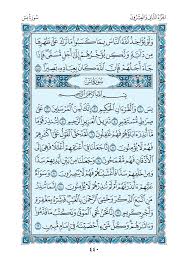 الجزء الثاني والعشرون سورة يس
وَلَوْ يُؤَاخِذُ ٱللَّهُ ٱلنَّاسَ بِمَا كَسَبُوا۟ مَا تَرَكَ عَلَىٰ ظَهْرِهَا
مِن دَآبَّةٍ وَلَٰكِن يُؤَخِّرُهُمْ إِلَىٰٓ أَجَلٍ مُّسَمًّى فَإِذَا
جَآءَ أَجَلُهُمْ فَإِنَّ ٱللَّهَ كَانَ بِعِبَادِهِۦ بَصِيرًۢا ٤٥
سورة يس
بِسْمِ ٱللَّهِ ٱلرَّحْمَٰنِ ٱلرَّحِيمِ
يسٓ ١ وَٱلْقُرْءَانِ ٱلْحَكِيمِ ٢ إِنَّكَ لَمِنَ ٱلْمُرْسَلِينَ ٣ عَلَىٰ صِرَٰطٍ
مُّسْتَقِيمٍ ٤ تَنزِيلَ ٱلْعَزِيزِ ٱلرَّحِيمِ ٥ لِتُنذِرَ قَوْمًا مَّآ أُنذِرَ
ءَابَآؤُهُمْ فَهُمْ غَٰفِلُونَ ٦ لَقَدْ حَقَّ ٱلْقَوْلُ عَلَىٰٓ أَكْثَرِهِمْ فَهُمْ
لَا يُؤْمِنُونَ ٧ إِنَّا جَعَلْنَا فِىٓ أَعْنَٰقِهِمْ أَغْلَٰلًا فَهِىَ إِلَى
ٱلْأَذْقَانِ فَهُم مُّقْمَحُونَ ٨ وَجَعَلْنَا مِنۢ بَيْنِ أَيْدِيهِمْ سَدًّا
وَمِنْ خَلْفِهِمْ سَدًّا فَأَغْشَيْنَٰهُمْ فَهُمْ لَا يُبْصِرُونَ ٩ وَسَوَآءٌ
عَلَيْهِمْ ءَأَنذَرْتَهُمْ أَمْ لَمْ تُنذِرْهُمْ لَا يُؤْمِنُونَ ١٠ إِنَّمَا تُنذِرُ
مَنِ ٱتَّبَعَ ٱلذِّكْرَ وَخَشِىَ ٱلرَّحْمَٰنَ بِٱلْغَيْبِ فَبَشِّرْهُ بِمَغْفِرَةٍ
وَأَجْرٍ كَرِيمٍ ١١ إِنَّا نَحْنُ نُحْىِ ٱلْمَوْتَىٰ وَنَكْتُبُ مَا قَدَّمُوا۟
وَءَاثَٰرَهُمْ وَكُلَّ شَىْءٍ أَحْصَيْنَٰهُ فِىٓ إِمَامٍ مُّبِينٍ ١٢
٤٤٠